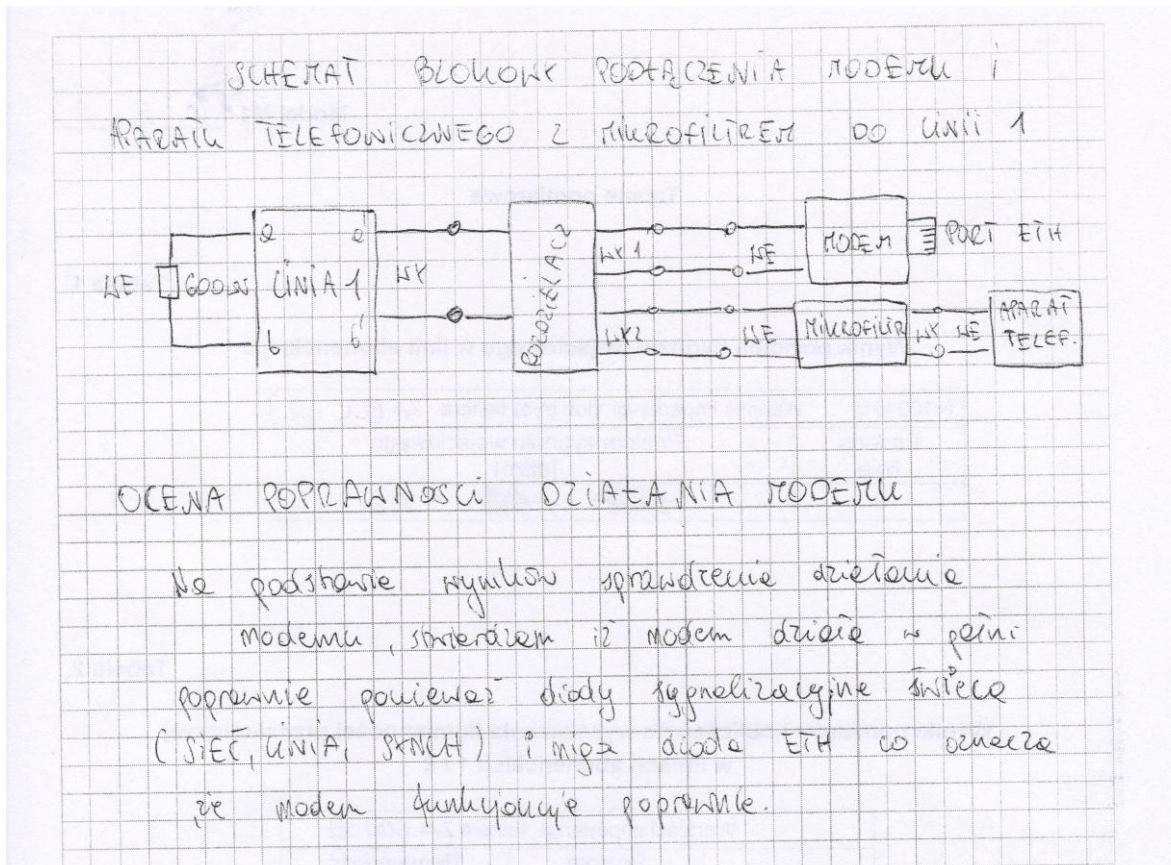 SCHEMAT BLOKOWY PODŁĄCZENIA MODEMU I
APARATU TELEFONICZNEGO Z MIKROFILTREM DO LINII 1
a a'
WE 600Ω LINIA 1 WY
b b'
ROZDZIELACZ
WY1 WE MODEM PORT ETH
WY2 WE MIKROFILTR WY WE APARAT TELEF.
OCENA POPRAWNOŚCI DZIAŁANIA MODEMU
Na podstawie wyników sprawdzenia działania
modemu, stwierdzam iż modem działa w pełni
poprawnie ponieważ diody sygnalizacyjne świecą
(SIEĆ, LINIA, SYNCH) i miga dioda ETH co oznacza
że modem funkcjonuje poprawnie.